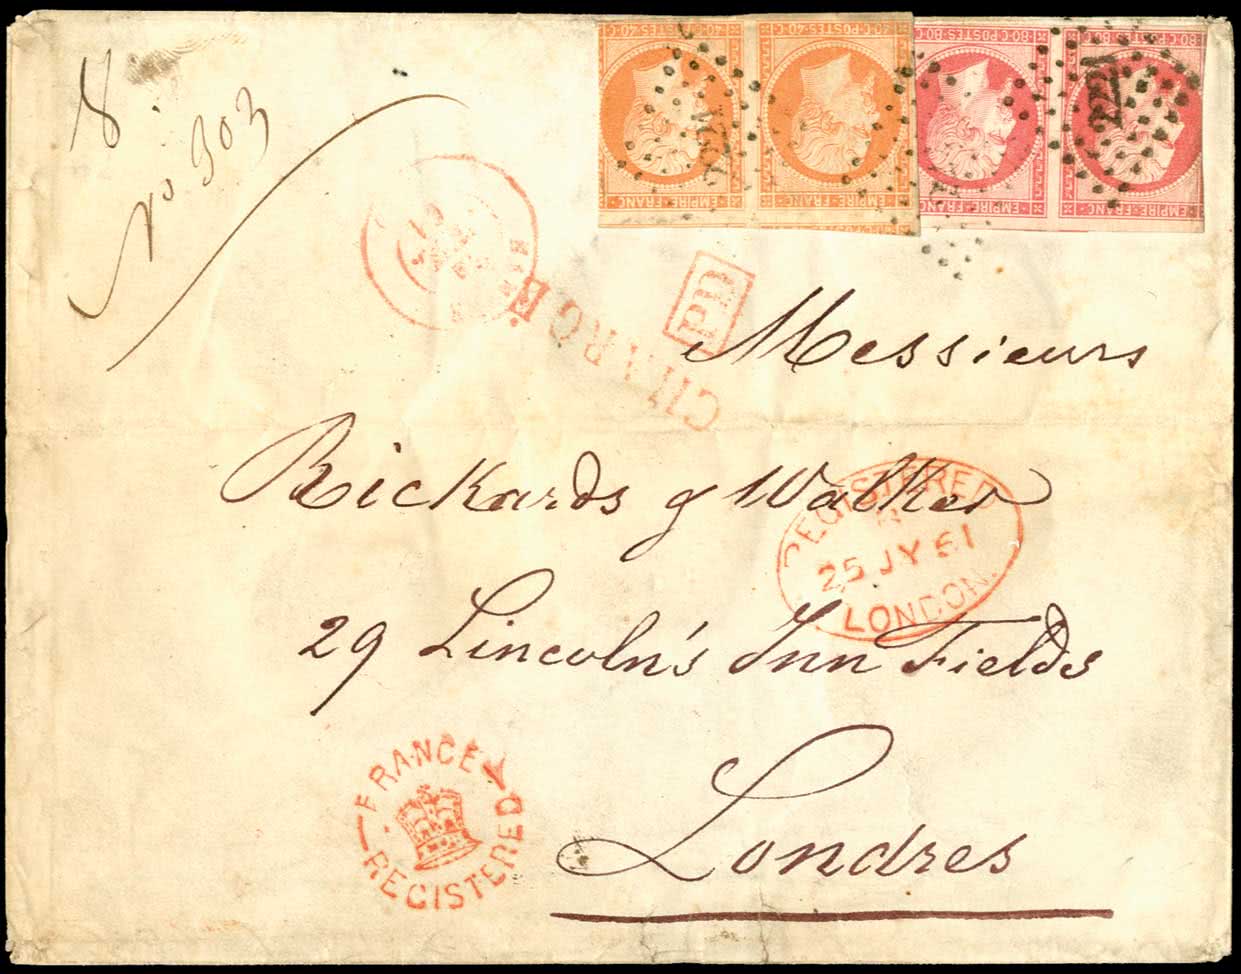 40·C·POSTES·40·C
40·C·POSTES·40·C
80·C·POSTES·80·C
80·C·POSTES·80·C
EMPIRE·FRANC·
EMPIRE·FRANC·
EMPIRE·FRANC·
EMPIRE·FRANC·
2221
No 903
61
PD
CHARGÉ
Messieurs
Rickards & Walker
REGISTERED
25 JY 61
LONDON
29 Lincoln's Inn Fields
FRANCE
REGISTERED
Londres